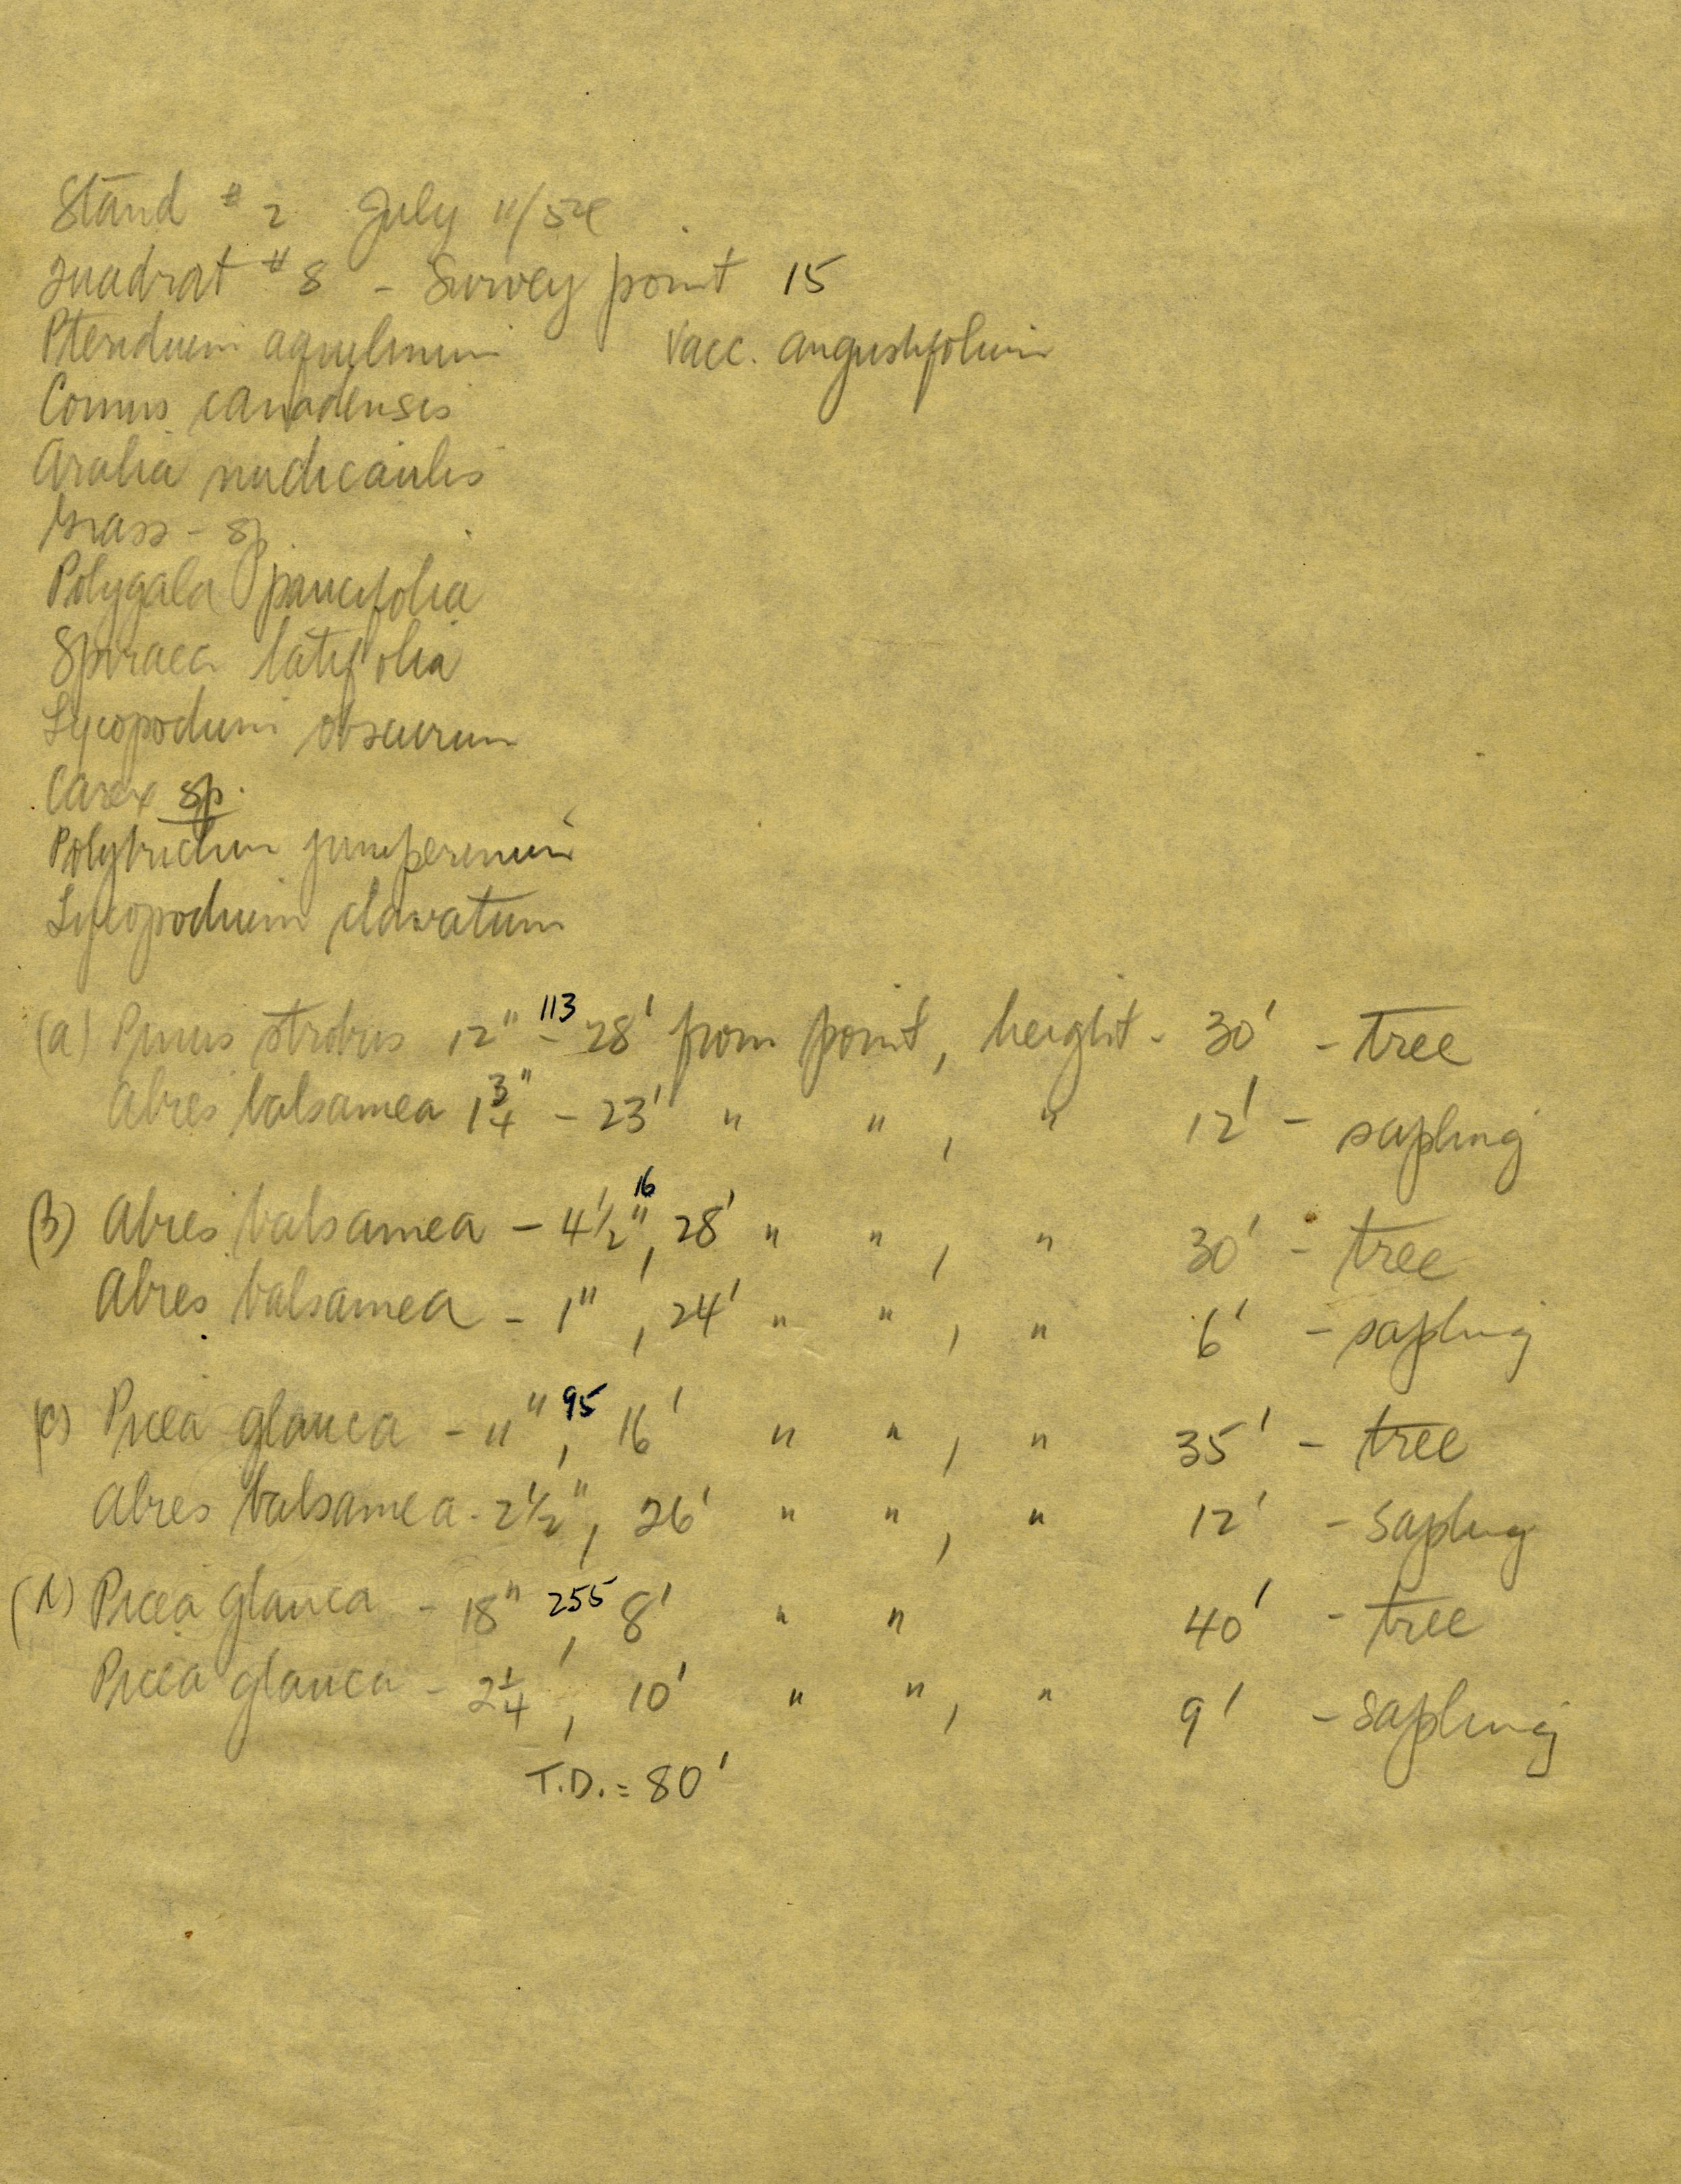 Stand # 2 July 11/54
Quadrat # 8 - Survey point 15
Pteridium aquilinum Vacc. angustifolium
Cornus canadensis
Aralia nudicaulis
Grass - sp.
Polygala paucifolia
Spiraea latifolia
Lycopodium obscurum
Carex sp.
Polytrichum juniperinum
Lycopodium clavatum
(a) Pinus strobus 12" 113 - 28' from point, height - 30' - tree
Abies balsamea 1 3/4" - 23' " " , " 12' - sapling
(B) Abies balsamea - 4 1/2" 16 , 28' " " , " 30' - tree
Abies balsamea - 1" , 24' " " , " 6' - sapling
(C) Picea glauca - 11" 95 , 16' " " , " 35' - tree
Abies balsamea - 2 1/2" , 26' " " , " 12' - sapling
(D) Picea glauca - 18" 255 , 8' " " 40' - tree
Picea glauca - 2 1/4' , 10' " " , " 9' - sapling
T.D. = 80'